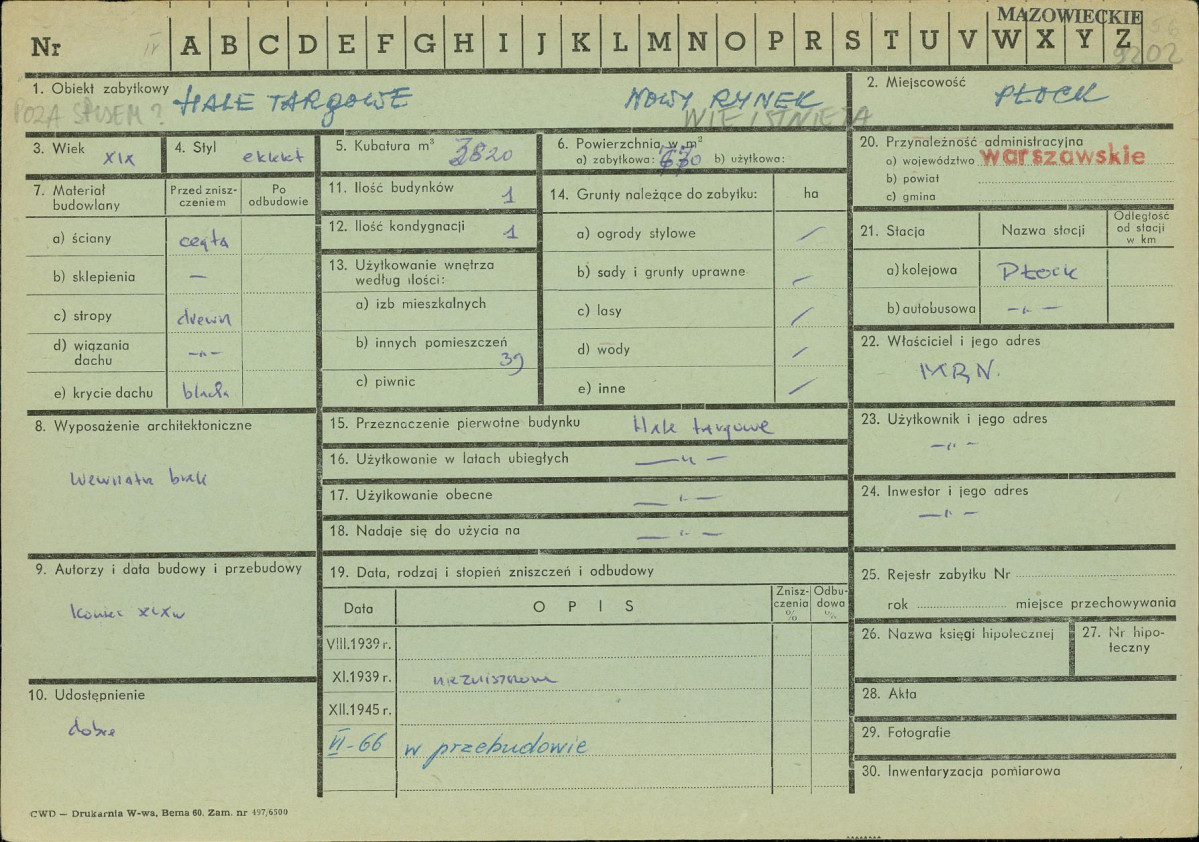 MAZOWIECKIE
Nr IV A B C D E F G H I J K L M N O P R S T U V W X Y Z
9202
1. Obiekt zabytkowy HALE TARGOWE NOWY RYNEK
POZA SPISEM ? NIE ISTNIEJĄ
2. Miejscowość PŁOCK
3. Wiek XIX
4. Styl eklekt
5. Kubatura m³ 3820
6. Powierzchnia w m²
a) zabytkowa: 670 b) użytkowa:
20. Przynależność administracyjna
a) województwo warszawskie
b) powiat
c) gmina
7. Materiał budowlany
Przed zniszczeniem
Po odbudowie
a) ściany cegła
b) sklepienia —
c) stropy drewn
d) wiązania dachu —"—
e) krycie dachu blacha
11. Ilość budynków 1
12. Ilość kondygnacji 1
13. Użytkowanie wnętrza według ilości:
a) izb mieszkalnych
b) innych pomieszczeń 39
c) piwnic
14. Grunty należące do zabytku: ha
a) ogrody stylowe /
b) sady i grunty uprawne /
c) lasy /
d) wody /
e) inne /
21. Stacja Nazwa stacji Odległość od stacji w km
a) kolejowa Płock
b) autobusowa —"—
22. Właściciel i jego adres
MRN.
8. Wyposażenie architektoniczne
wewnątrz brak
15. Przeznaczenie pierwotne budynku Hale targowe
16. Użytkowanie w latach ubiegłych —"—
17. Użytkowanie obecne —"—
18. Nadaje się do użycia na —"—
23. Użytkownik i jego adres
—"—
24. Inwestor i jego adres
—"—
9. Autorzy i data budowy i przebudowy
Koniec XIX w
10. Udostępnienie
dobre
19. Data, rodzaj i stopień zniszczeń i odbudowy
Data OPIS Zniszczenia % Odbudowa %
VIII.1939 r.
XI.1939 r. niezniszczone
XII.1945 r.
VI-66 w przebudowie
25. Rejestr zabytku Nr
rok miejsce przechowywania
26. Nazwa księgi hipotecznej
27. Nr hipoteczny
28. Akta
29. Fotografie
30. Inwentaryzacja pomiarowa
CWD — Drukarnia W-wa, Bema 60. Zam. nr 497/6500